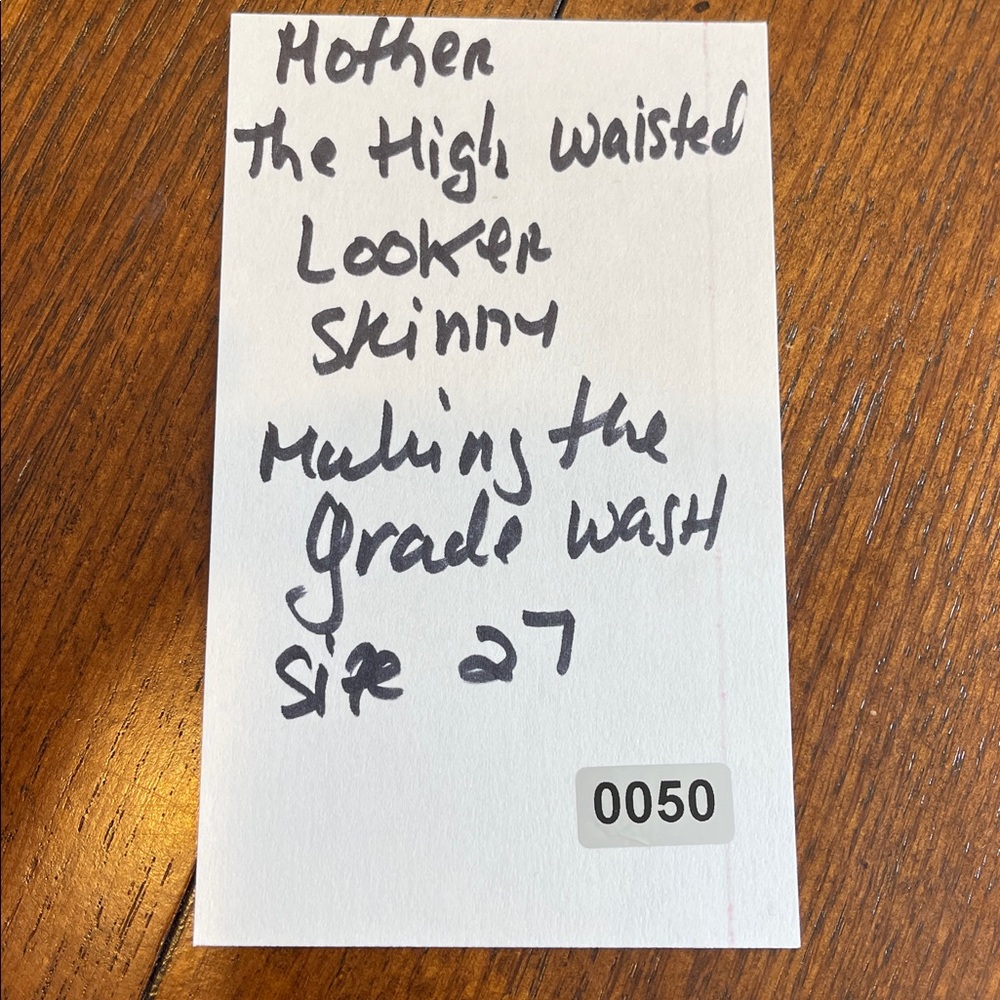 Mother
The High waisted
Looker
Skinny
Making the
grade wash
Size 27
0050